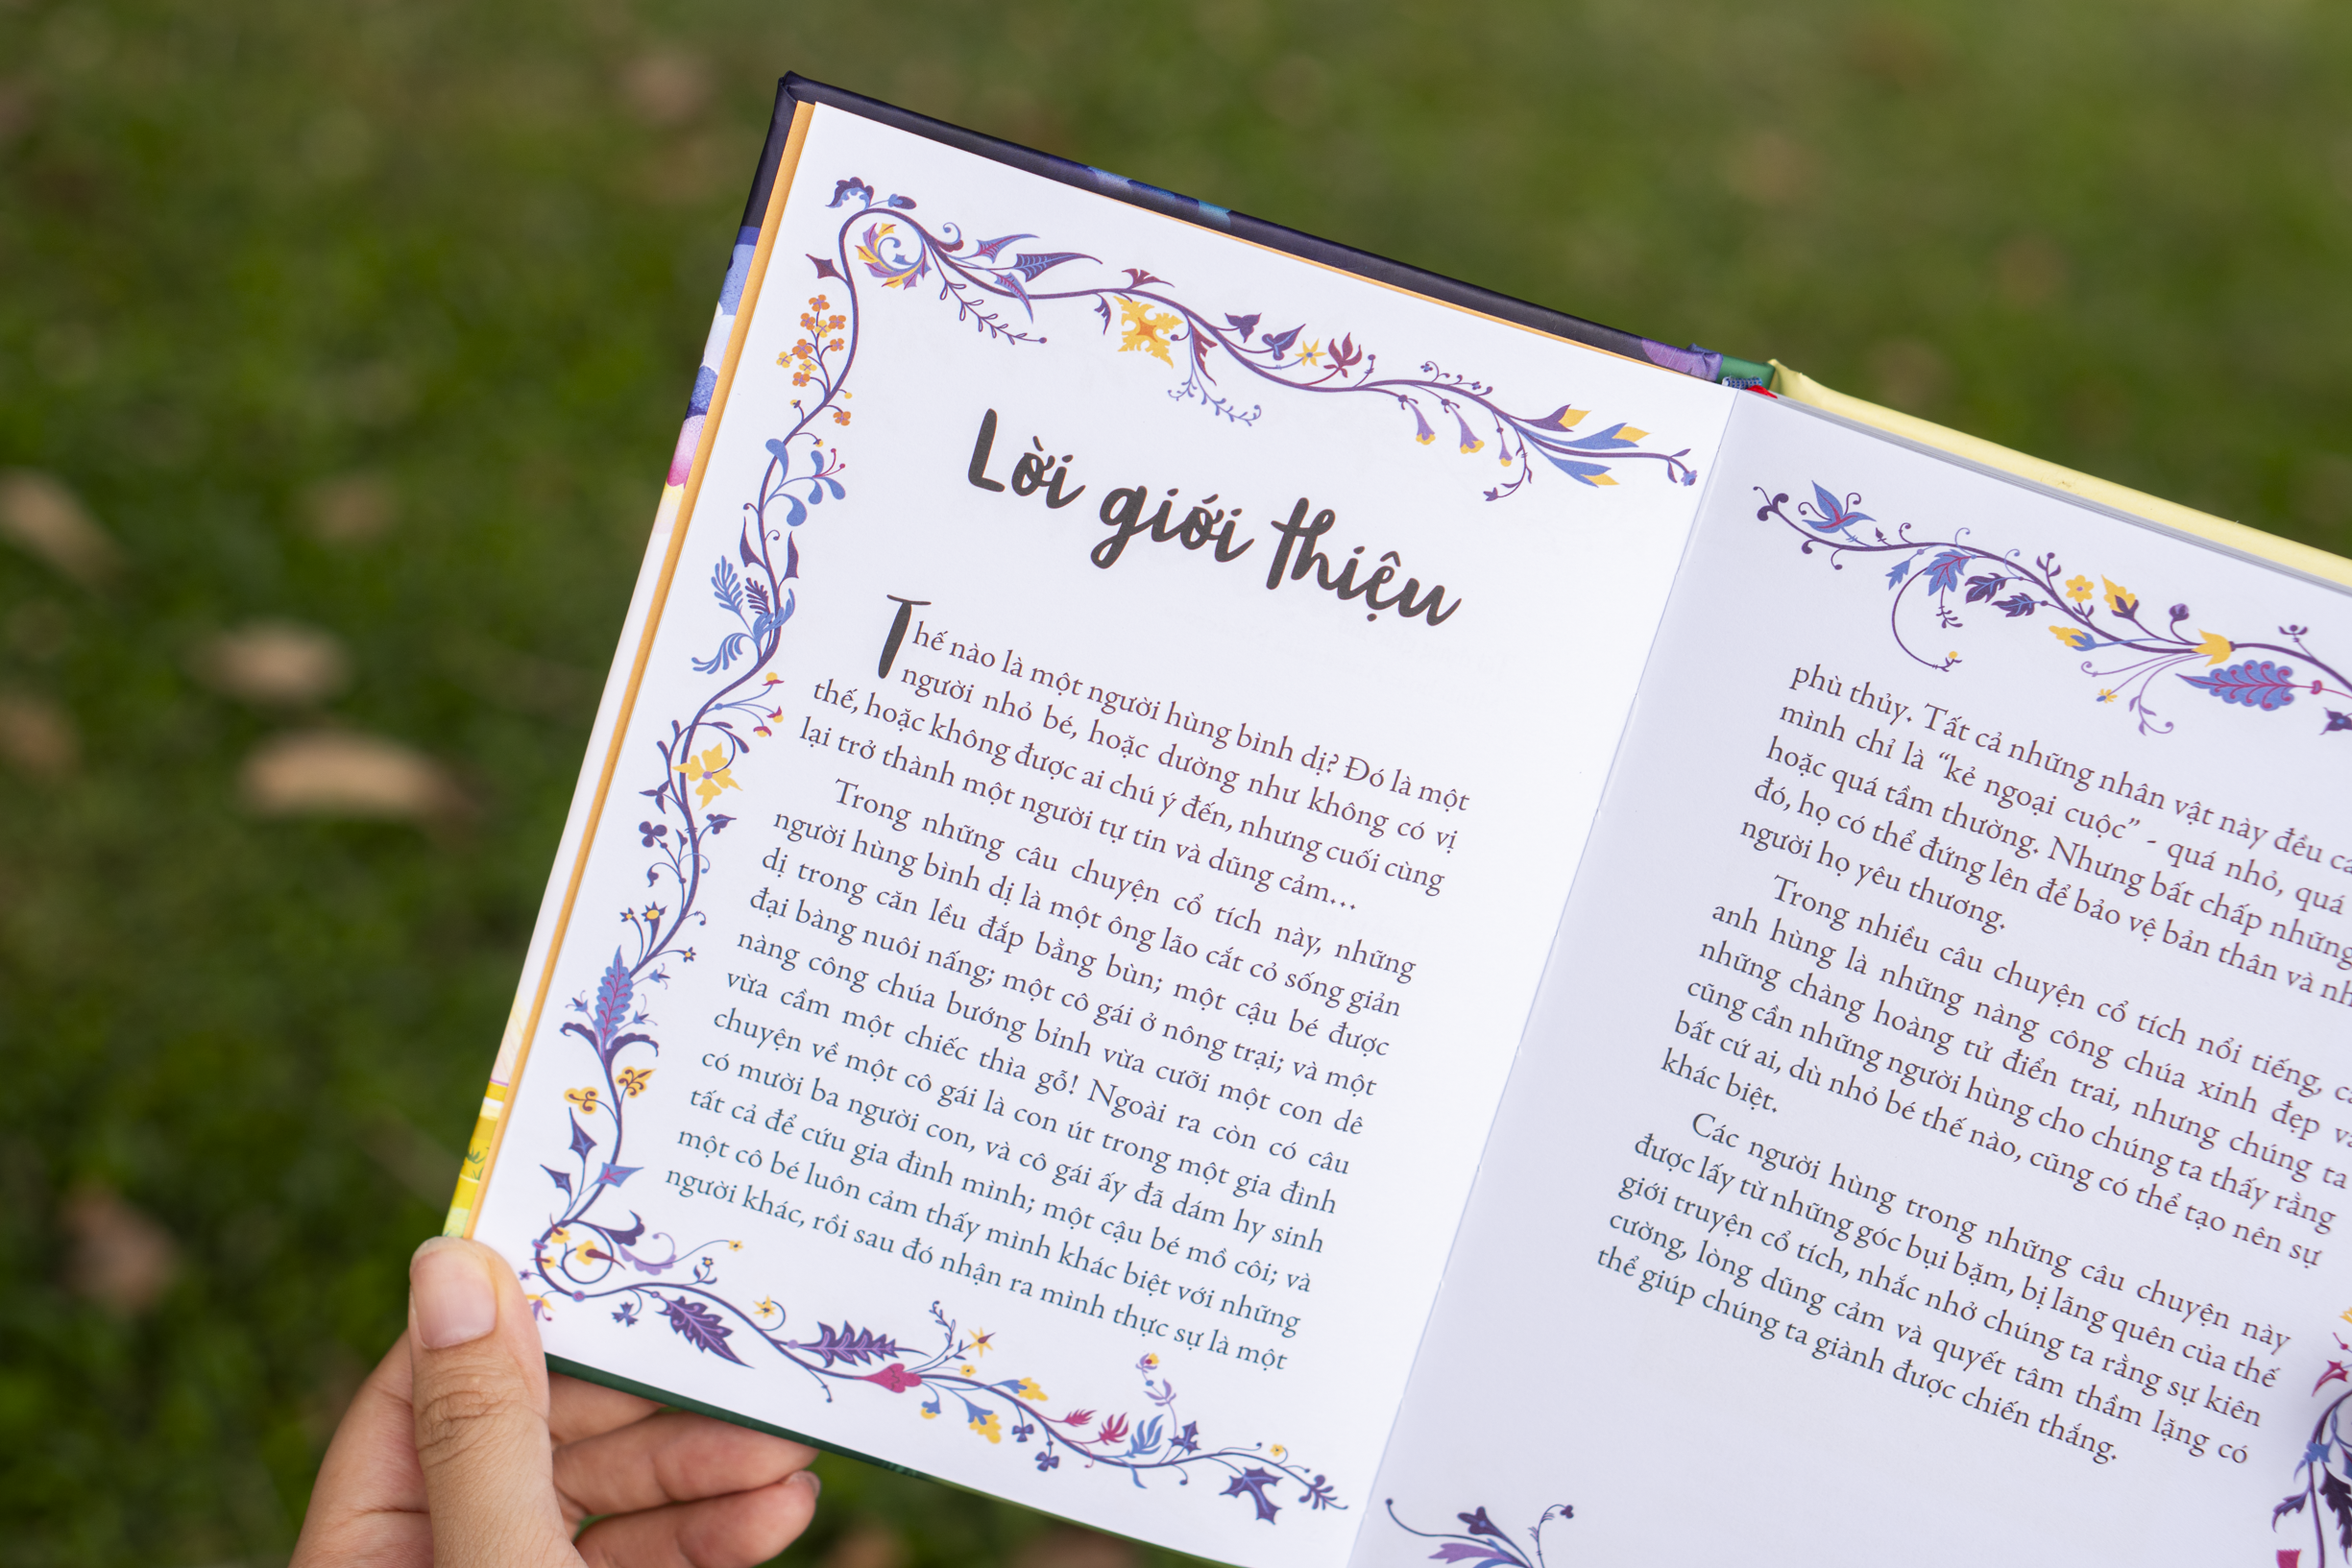 Lời giới thiệu
Thế nào là một người hùng bình dị? Đó là một
người nhỏ bé, hoặc dường như không có vị
thế, hoặc không được ai chú ý đến, nhưng cuối cùng
lại trở thành một người tự tin và dũng cảm...
Trong những câu chuyện cổ tích này, những
người hùng bình dị là một ông lão cắt cỏ sống giản
dị trong căn lều đắp bằng bùn; một cậu bé được
đại bàng nuôi nấng; một cô gái ở nông trại; và một
nàng công chúa bướng bỉnh vừa cưỡi một con dê
vừa cầm một chiếc thìa gỗ! Ngoài ra còn có câu
chuyện về một cô gái là con út trong một gia đình
có mười ba người con, và cô gái ấy đã dám hy sinh
tất cả để cứu gia đình mình; một cậu bé mồ côi; và
một cô bé luôn cảm thấy mình khác biệt với những
người khác, rồi sau đó nhận ra mình thực sự là một
phù thủy. Tất cả những nhân vật này đều
mình chỉ là “kẻ ngoại cuộc” - quá nhỏ, quá
hoặc quá tầm thường. Nhưng bất chấp những
đó, họ có thể đứng lên để bảo vệ bản thân và
người họ yêu thương.
Trong nhiều câu chuyện cổ tích nổi tiếng,
anh hùng là những nàng công chúa xinh đẹp
những chàng hoàng tử điển trai, nhưng chúng ta
cũng cần những người hùng cho chúng ta thấy rằng
bất cứ ai, dù nhỏ bé thế nào, cũng có thể tạo nên sự
khác biệt.
Các người hùng trong những câu chuyện này
được lấy từ những góc bụi bặm, bị lãng quên của thế
giới truyện cổ tích, nhắc nhở chúng ta rằng sự kiên
cường, lòng dũng cảm và quyết tâm thầm lặng có
thể giúp chúng ta giành được chiến thắng.